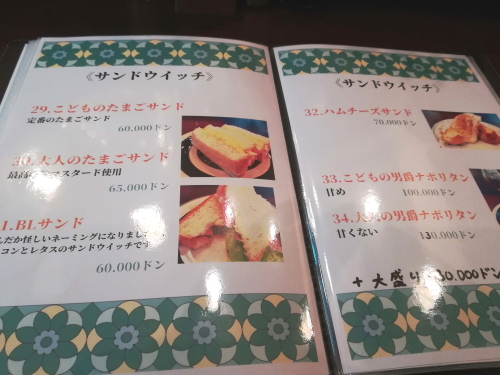 《サンドウイッチ》
29.こどものたまごサンド
定番のたまごサンド
60.000ドン
30.大人のたまごサンド
マスタード使用
65.000ドン
1.BLサンド
だか怪しいネーミングになりました
コンとレタスのサンドウイッチです
60.000ドン
《サンドウイッチ》
32.ハムチーズサンド
70.000ドン
33.こどもの男爵ナポリタン
甘め
100.000ドン
34.大人の男爵ナポリタン
甘くない
130.000ドン
+大盛り 30.000ドン